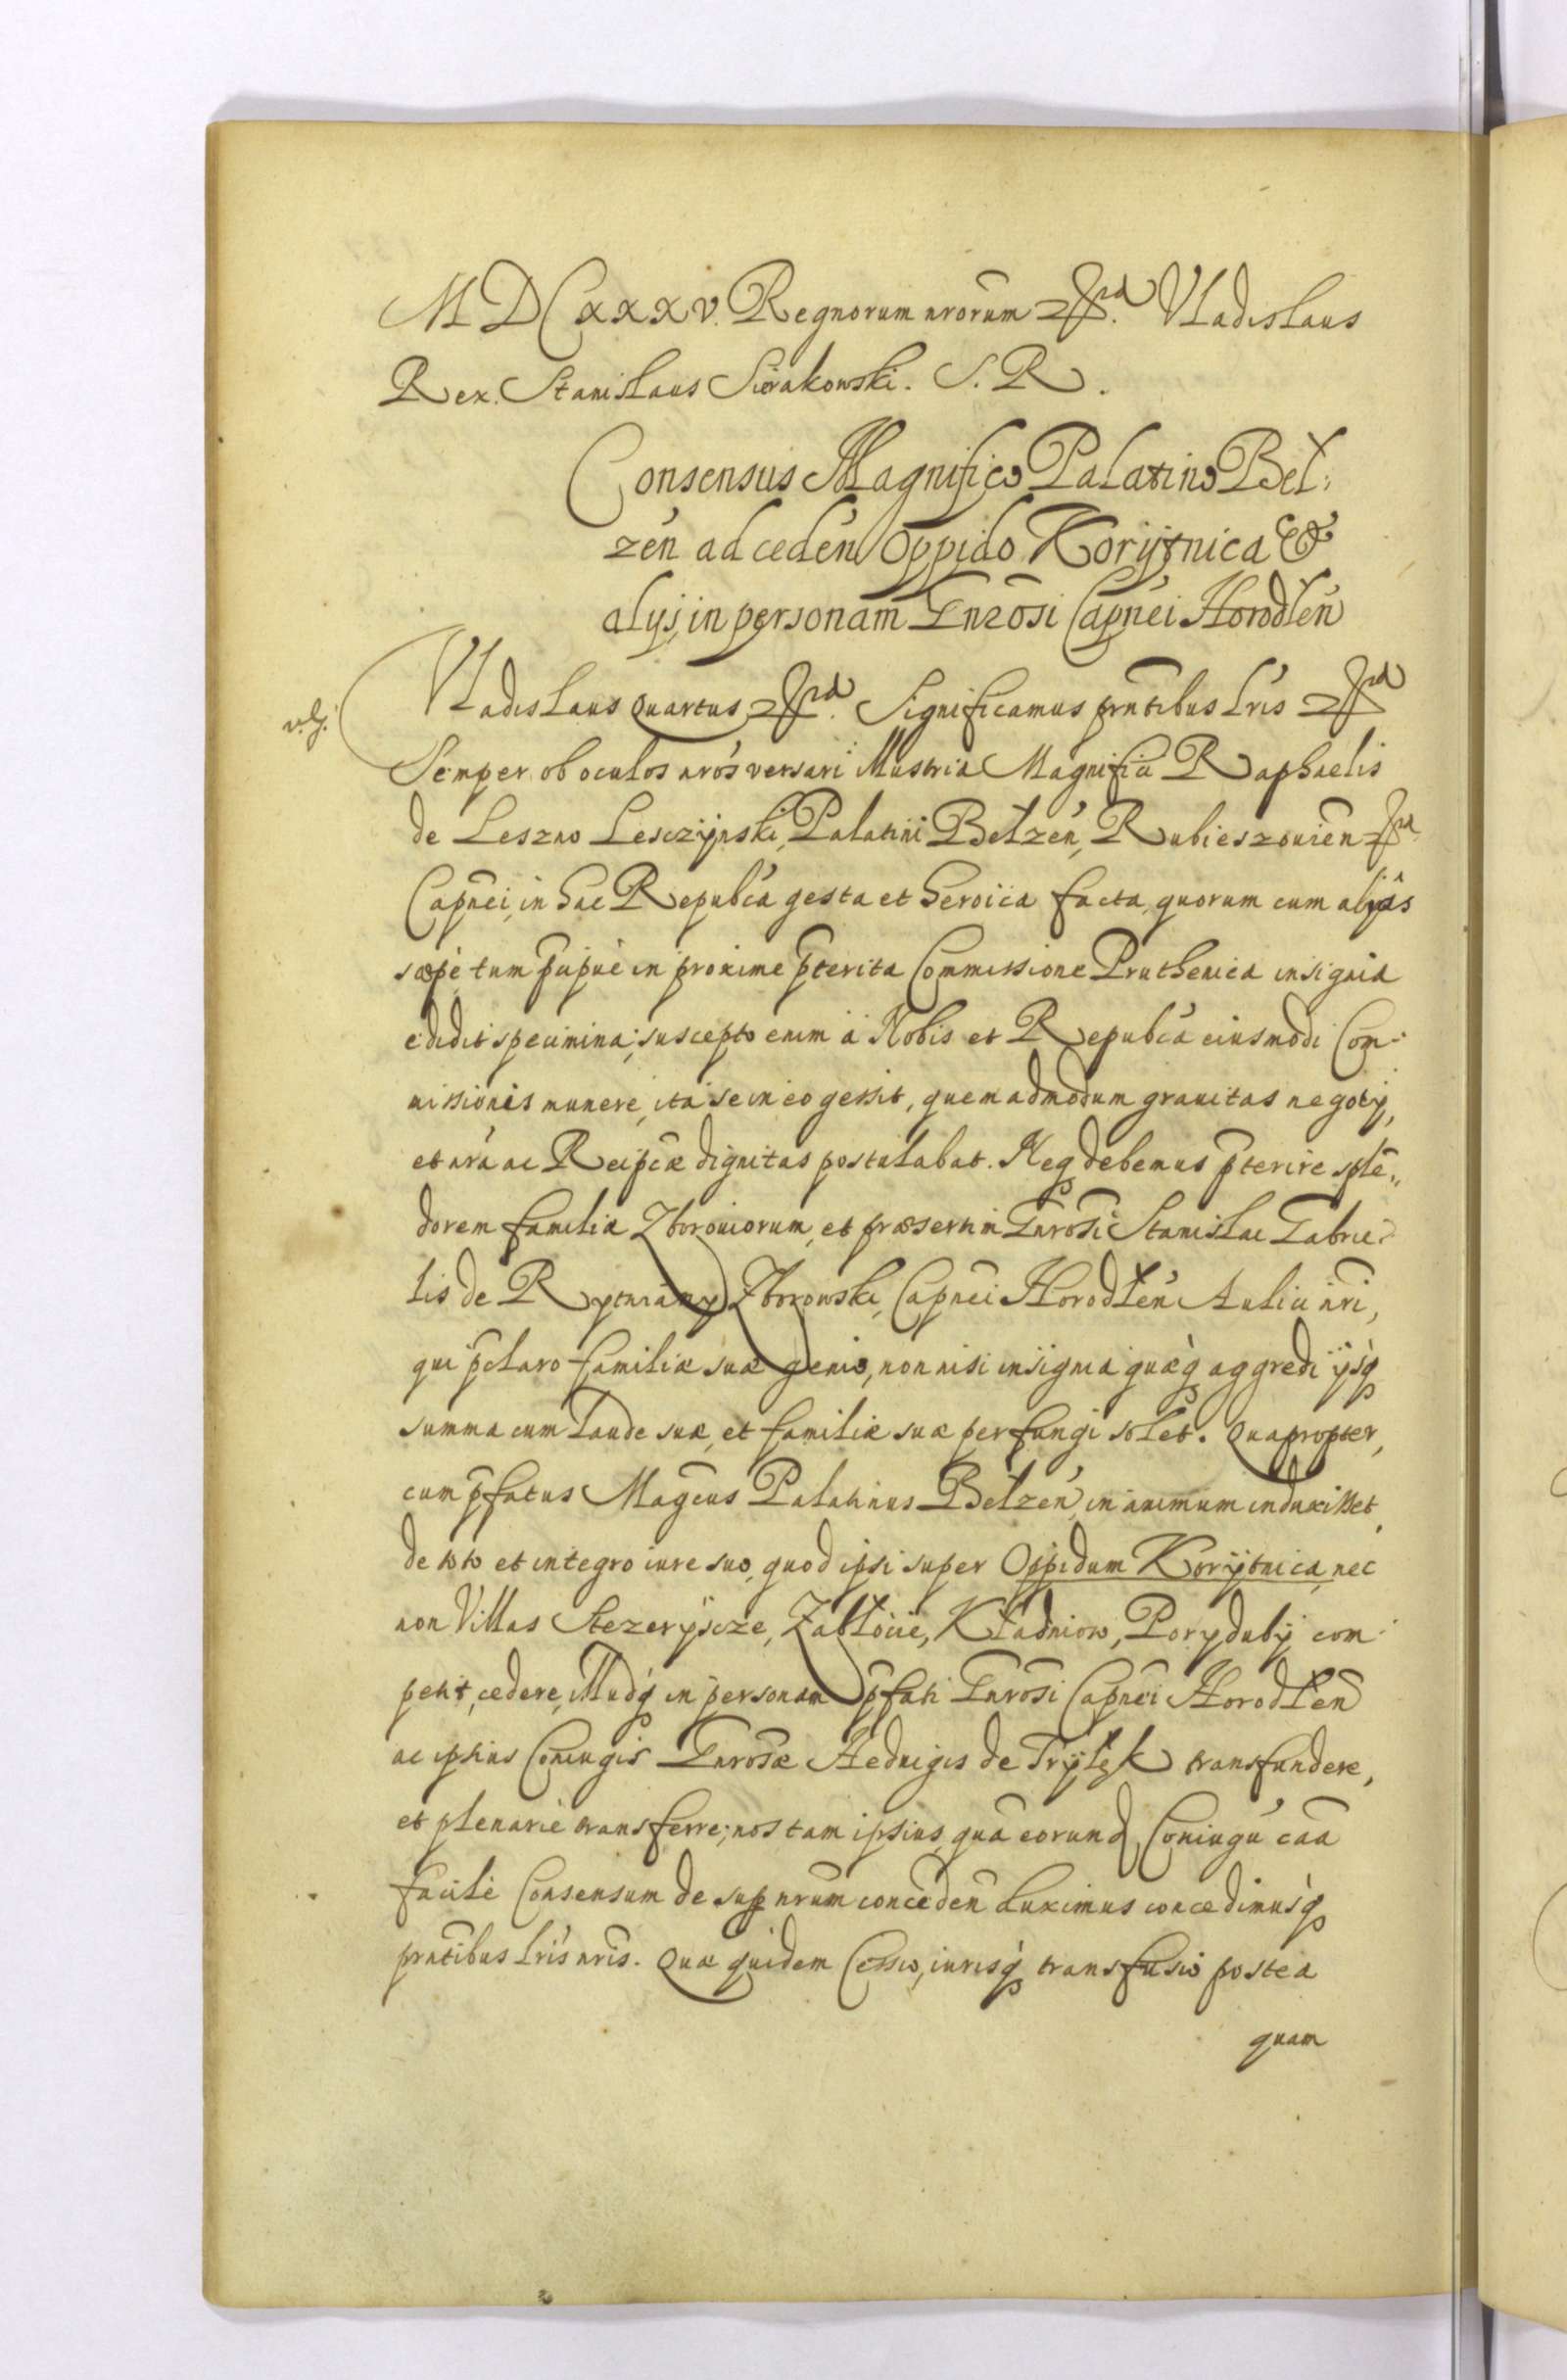 MDCxxxv. Regnorum nrorum &ra. Vladislaus
Rex. Stanislaus Sierakowski. S. R.
Consensus Magnifico Palatino Bel:
zen̄ ad ceden̄ Oppido Korÿtnica &
alijs, in personam Gnr̄osi Capnēi Horodłen̄
Vladislaus Quartus &ra. Significamus prn̄tibus Lr̄is &ra
Semper ob oculos nrōs versari illustria Magnifici Raphaelis
de Leszno Lesczÿnski, Palatini Belzen̄, Rubieszouien̄ &ra
Capnēi, in hac Republ̄ca gesta et heroica facta, quorum cum alias
sæpè, tum p̄cipuè in proxime p̄terita Commissione Pruthenica insignia
edidit specimina; suscepto enim à Nobis et Republ̄ca eiusmodi Com-
missionis munere, ita se in eo gessit, quemadmodum grauitas negotij,
et nrā ac Reipc̄æ dignitas postulabat. Neq̨ debemus p̄terire splē,,
dorem familiæ Zborouiorum, et præsertim Gnr̄osi Stanislai Gabrie-
lis de Rytwiany Zborowski, Capnēi Horodłen̄ Aulici nr̄i,
qui p̄claro familiæ suæ genio, non nisi insignia quæq̨ aggredi ijsq̨
summa cum laude sua, et familiæ suæ perfungi solet. Quapropter,
cum p̄fatus Magc̄us Palatinus Belzen̄, in animum induxisset,
de toto et integro iure suo, quod ipsi super Oppidum Korÿtnica, nec
non Villas Stezerÿscze, Zabłocie, Kładniow, Poryduby com-
petit, cedere, illudq̨ in personam p̄fati Gnr̄osi Capnēi Horodłen̄
ac ipsius Coniugis Gnr̄osæ Heduigis de Trÿlęk transfundere,
et plenarie transferre; nos tam ipsius, quā eorund Coniugū cāā
facilè Consensum de sup̱ nrum conceden̄ duximus concedimusq̨
prn̄tibus Lr̄is nr̄is. Quæ quidem Cessio, iurisq̨ transfusio postea
quam